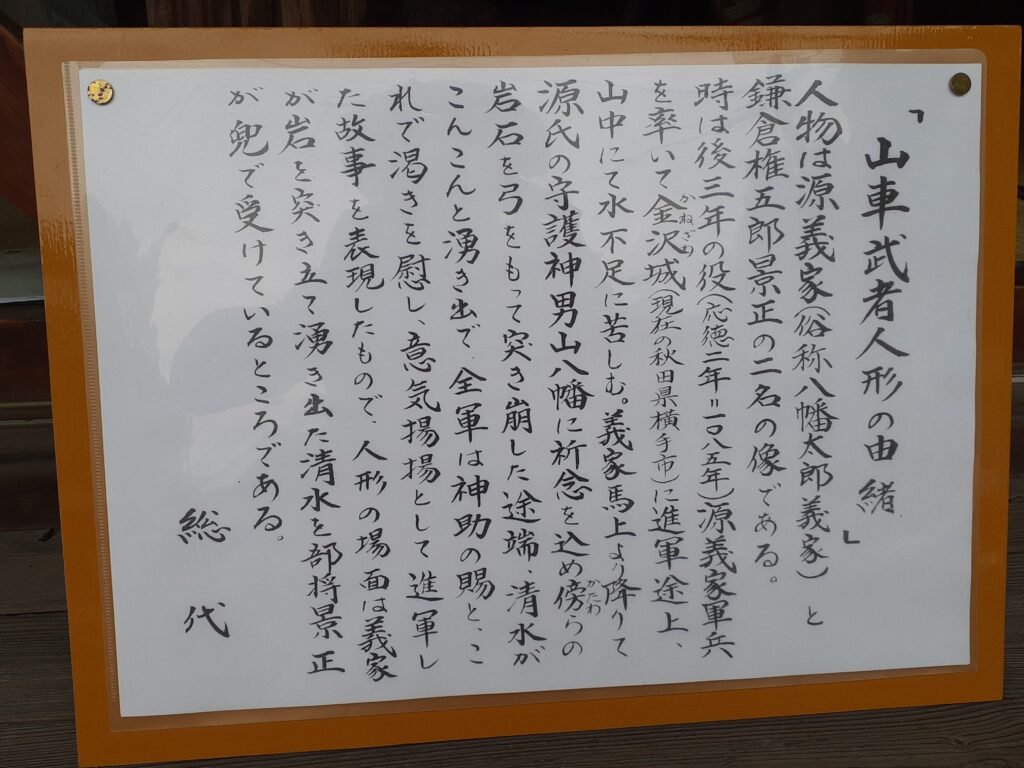 「山車武者人形の由緒」
人物は源義家(俗称八幡太郎義家)と
鎌倉権五郎景正の二名の像である。
時は後三年の役(応徳二年=一〇八五年)源義家軍兵
を率いて金沢城(現在の秋田県横手市)に進軍途上、
かねざわ
山中にて水不足に苦しむ。義家馬上より降りて
源氏の守護神男山八幡に祈念を込め傍らの
かたわ
岩石を弓をもって突き崩した途端、清水が
こんこんと湧き出で、全軍は神助の賜と、こ
れで渇きを慰し、意気揚揚として進軍し
た故事を表現したもので、人形の場面は義家
が岩を突き立て湧き出た清水を部将景正
が兜で受けているところである。
総代